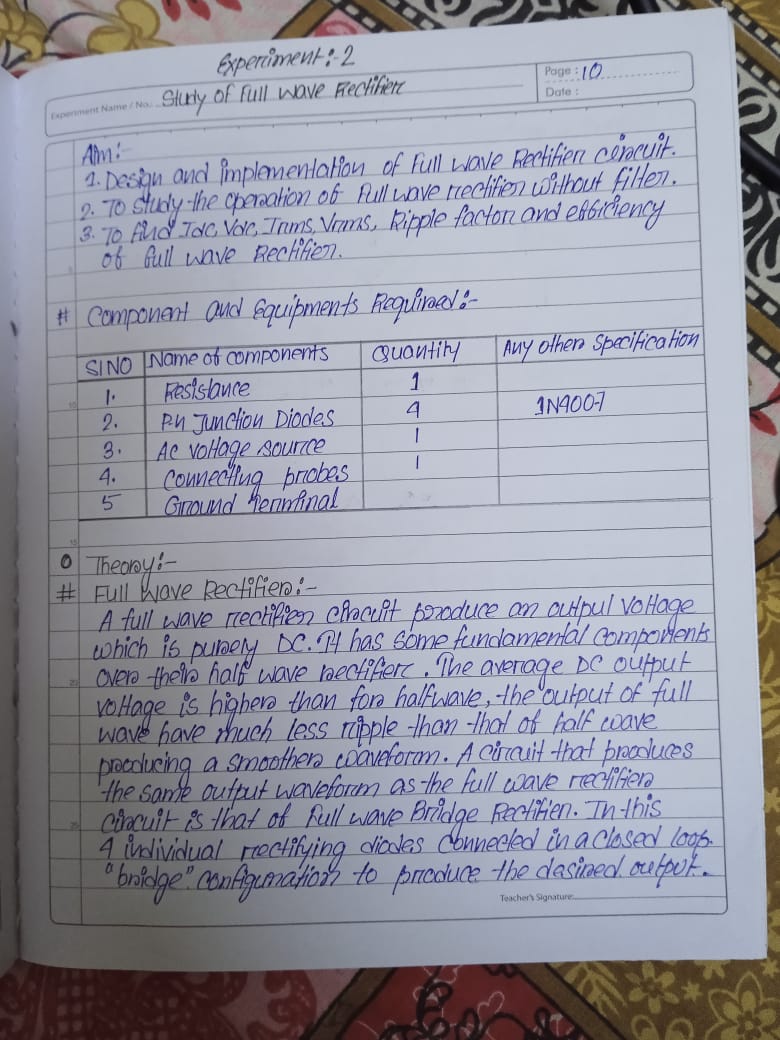 Experiment:-2
Experiment Name / No. Study of Full Wave Rectifier
Page : 10
Date :
Aim:-
1. Design and implementation of Full wave Rectifier circuit.
2. To study the operation of Full wave rectifier without filter.
3. To find Idc, Vdc, Irms, Vrms, Ripple factor and efficiency
of full wave Rectifier.
# Component and Equipments Required:-
SI NO Name of components Quantity Any other specification
1. Resistance 1
2. P.N Junction Diodes 4 1N4007
3. Ac voltage source 1
4. Connecting probes 1
5 Ground Terminal
Theory:-
# Full Wave Rectifier:-
A full wave rectifier circuit produce an output voltage
which is purely DC. It has some fundamental components
over their half wave rectifier. The average DC output
voltage is higher than for halfwave, the output of full
wave have much less ripple than that of half wave
producing a smoother waveform. A circuit that produces
the same output waveform as the full wave rectifier
circuit is that of Full wave Bridge Rectifier. In this
4 individual rectifying diodes connected in a closed loop
"bridge" configuration to produce the desired output.
Teacher's Signature: